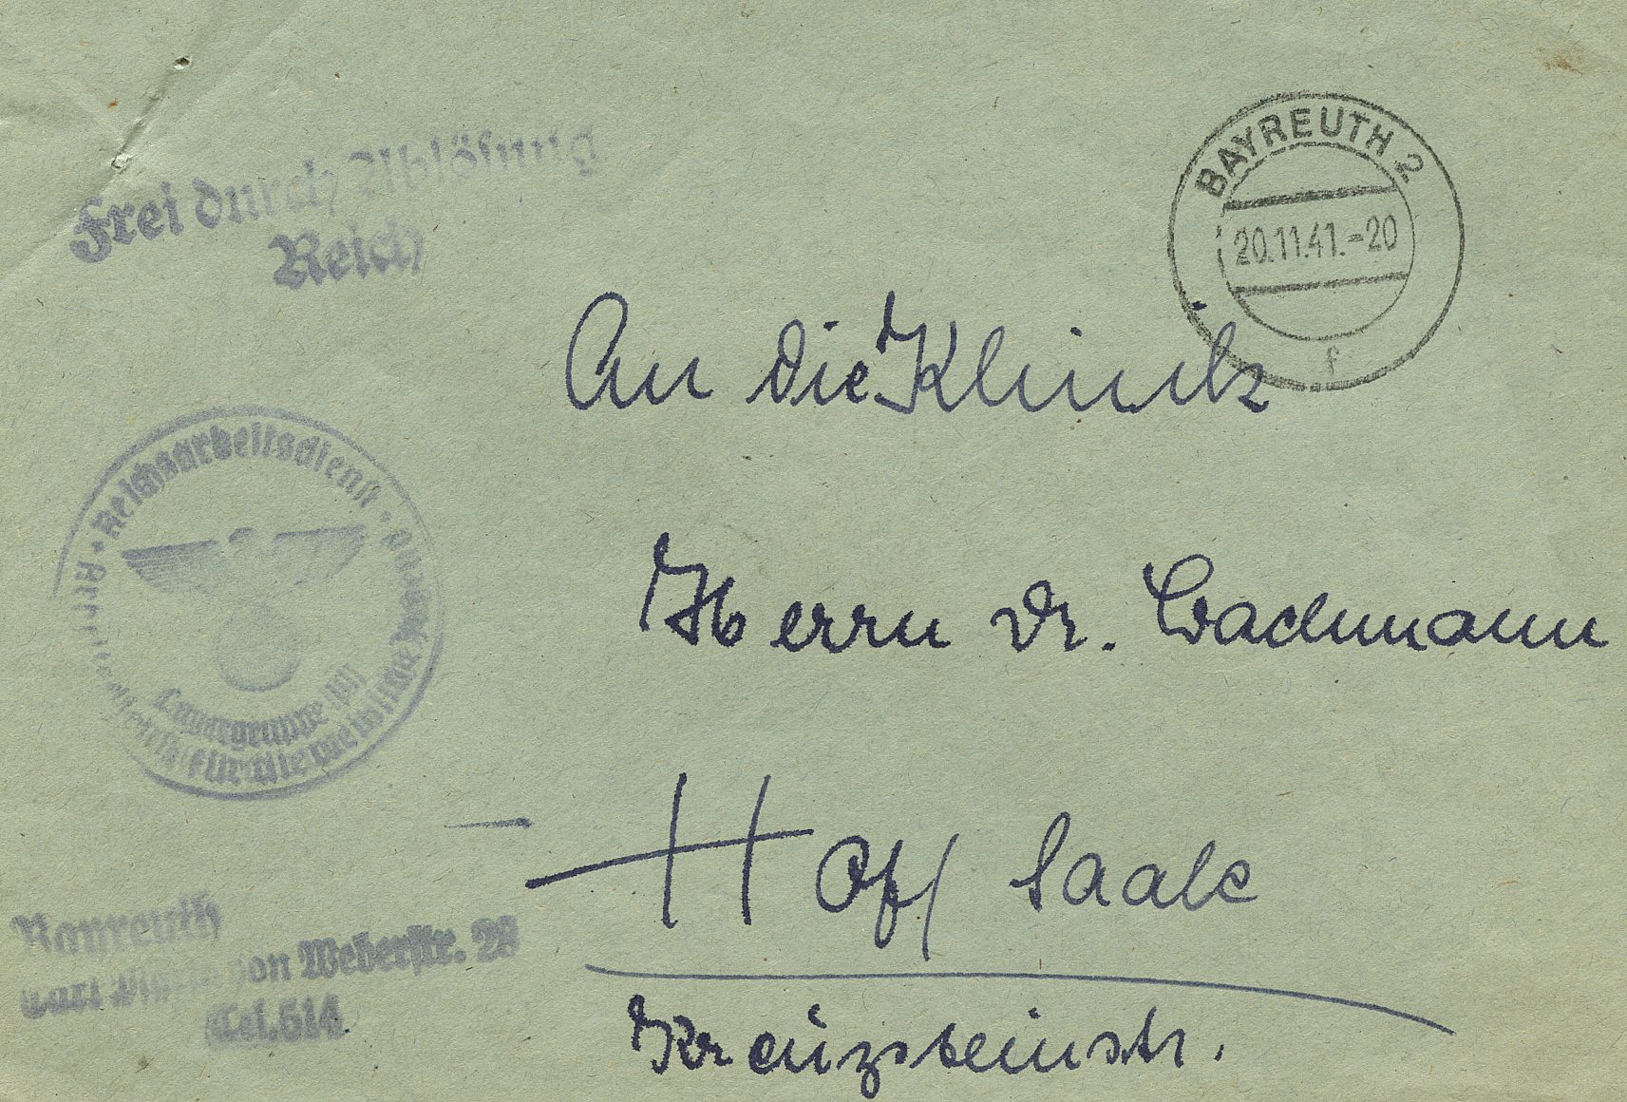 Frei durch Ablösung
Reich
BAYREUTH 2
20.11.41.-20
f
An die Klinik
Reichsarbeitsdienst
Lagergruppe
für die weibliche Jugend
Herrn Dr. Wachmann
Hof / Saale
Bayreuth
von Weberstr. 28
Tel. 614
Kreuzsteinstr.